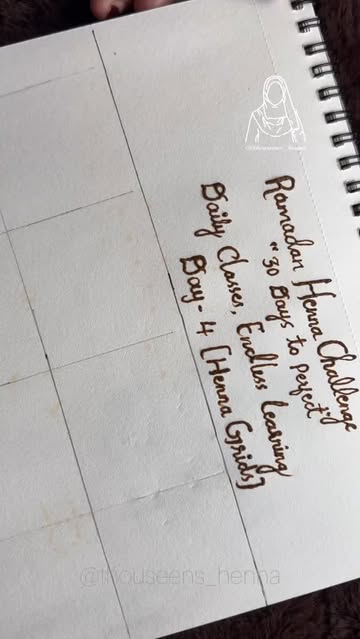 Ramadan Henna Challenge
"30 Days to Perfect"
Daily Classes, Endless Learning
Day - 4 [Henna Grids]
@thouseens_henna